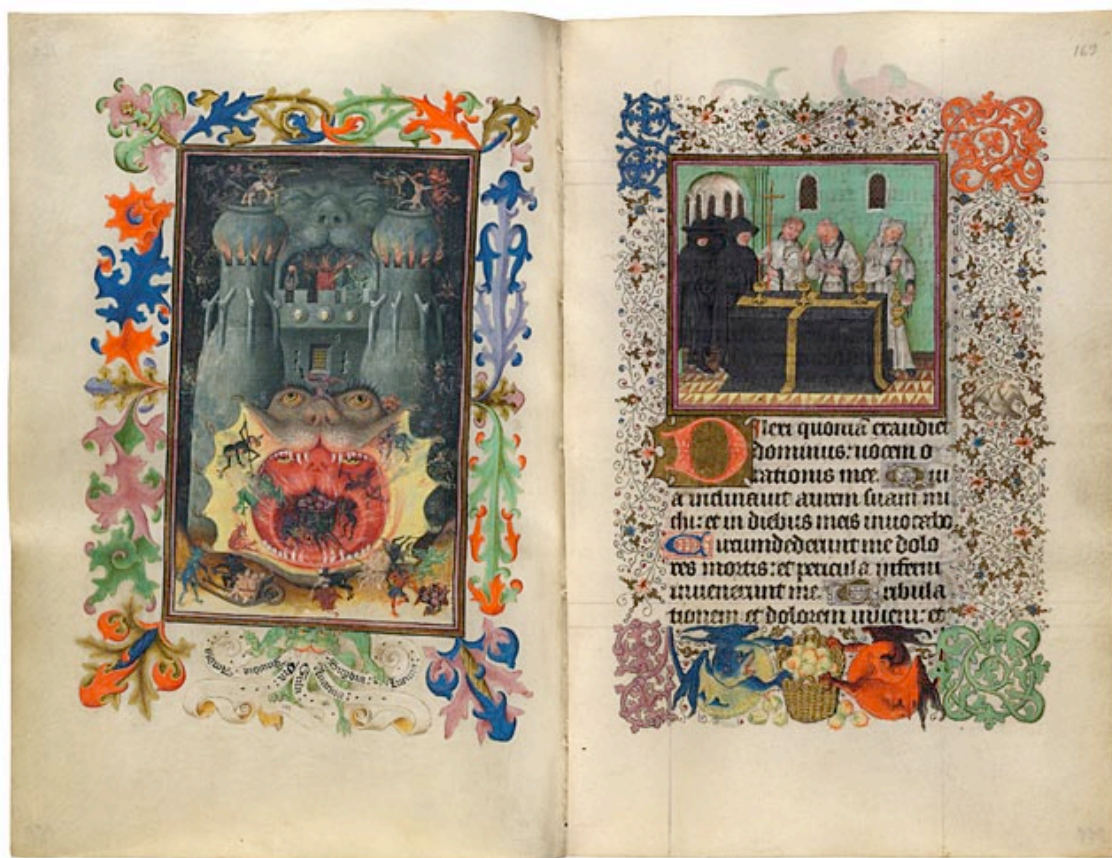 Superbia:
Gula:
Ira:
Inuidia
169
Dilexi quoniā exaudiet
dominus: uocem o
rationis mee. Qui
a inclinauit aurem suam mi
chi: et in diebus meis inuocabo
Circumdederunt me dolo
res mortis: et pericula inferni
inuenerunt me. Tribula
tionem et dolorem inueni: et